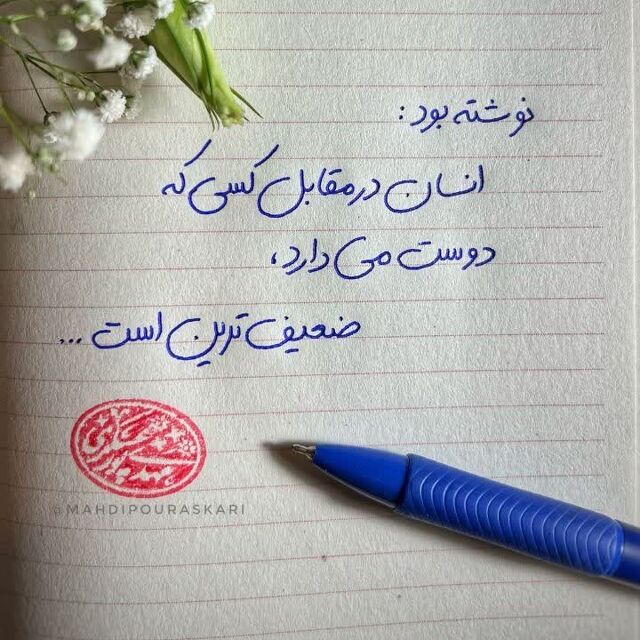 نوشته بود :
انسان در مقابل کسی که
دوست می دارد،
ضعیف ترین است ...
@MAHDIPOURASKARI